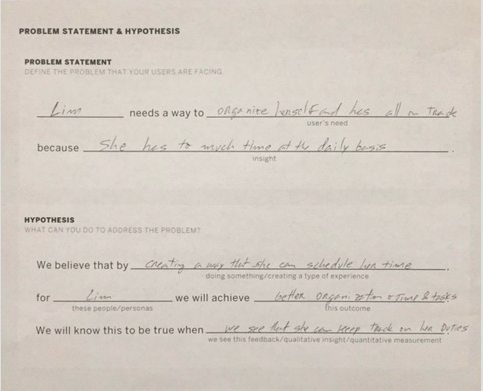 PROBLEM STATEMENT & HYPOTHESIS
PROBLEM STATEMENT
DEFINE THE PROBLEM THAT YOUR USERS ARE FACING.
needs a way to organize
user's need
because She has to much time at the daily basis.
insight
HYPOTHESIS
WHAT CAN YOU DO TO ADDRESS THE PROBLEM?
We believe that by creating a way that she can schedule her time.
doing something/creating a type of experience
for we will achieve better organization & tasks
these people/personas this outcome
We will know this to be true when we see that she can keep track on her Duties
we see this feedback/qualitative insight/quantitative measurement